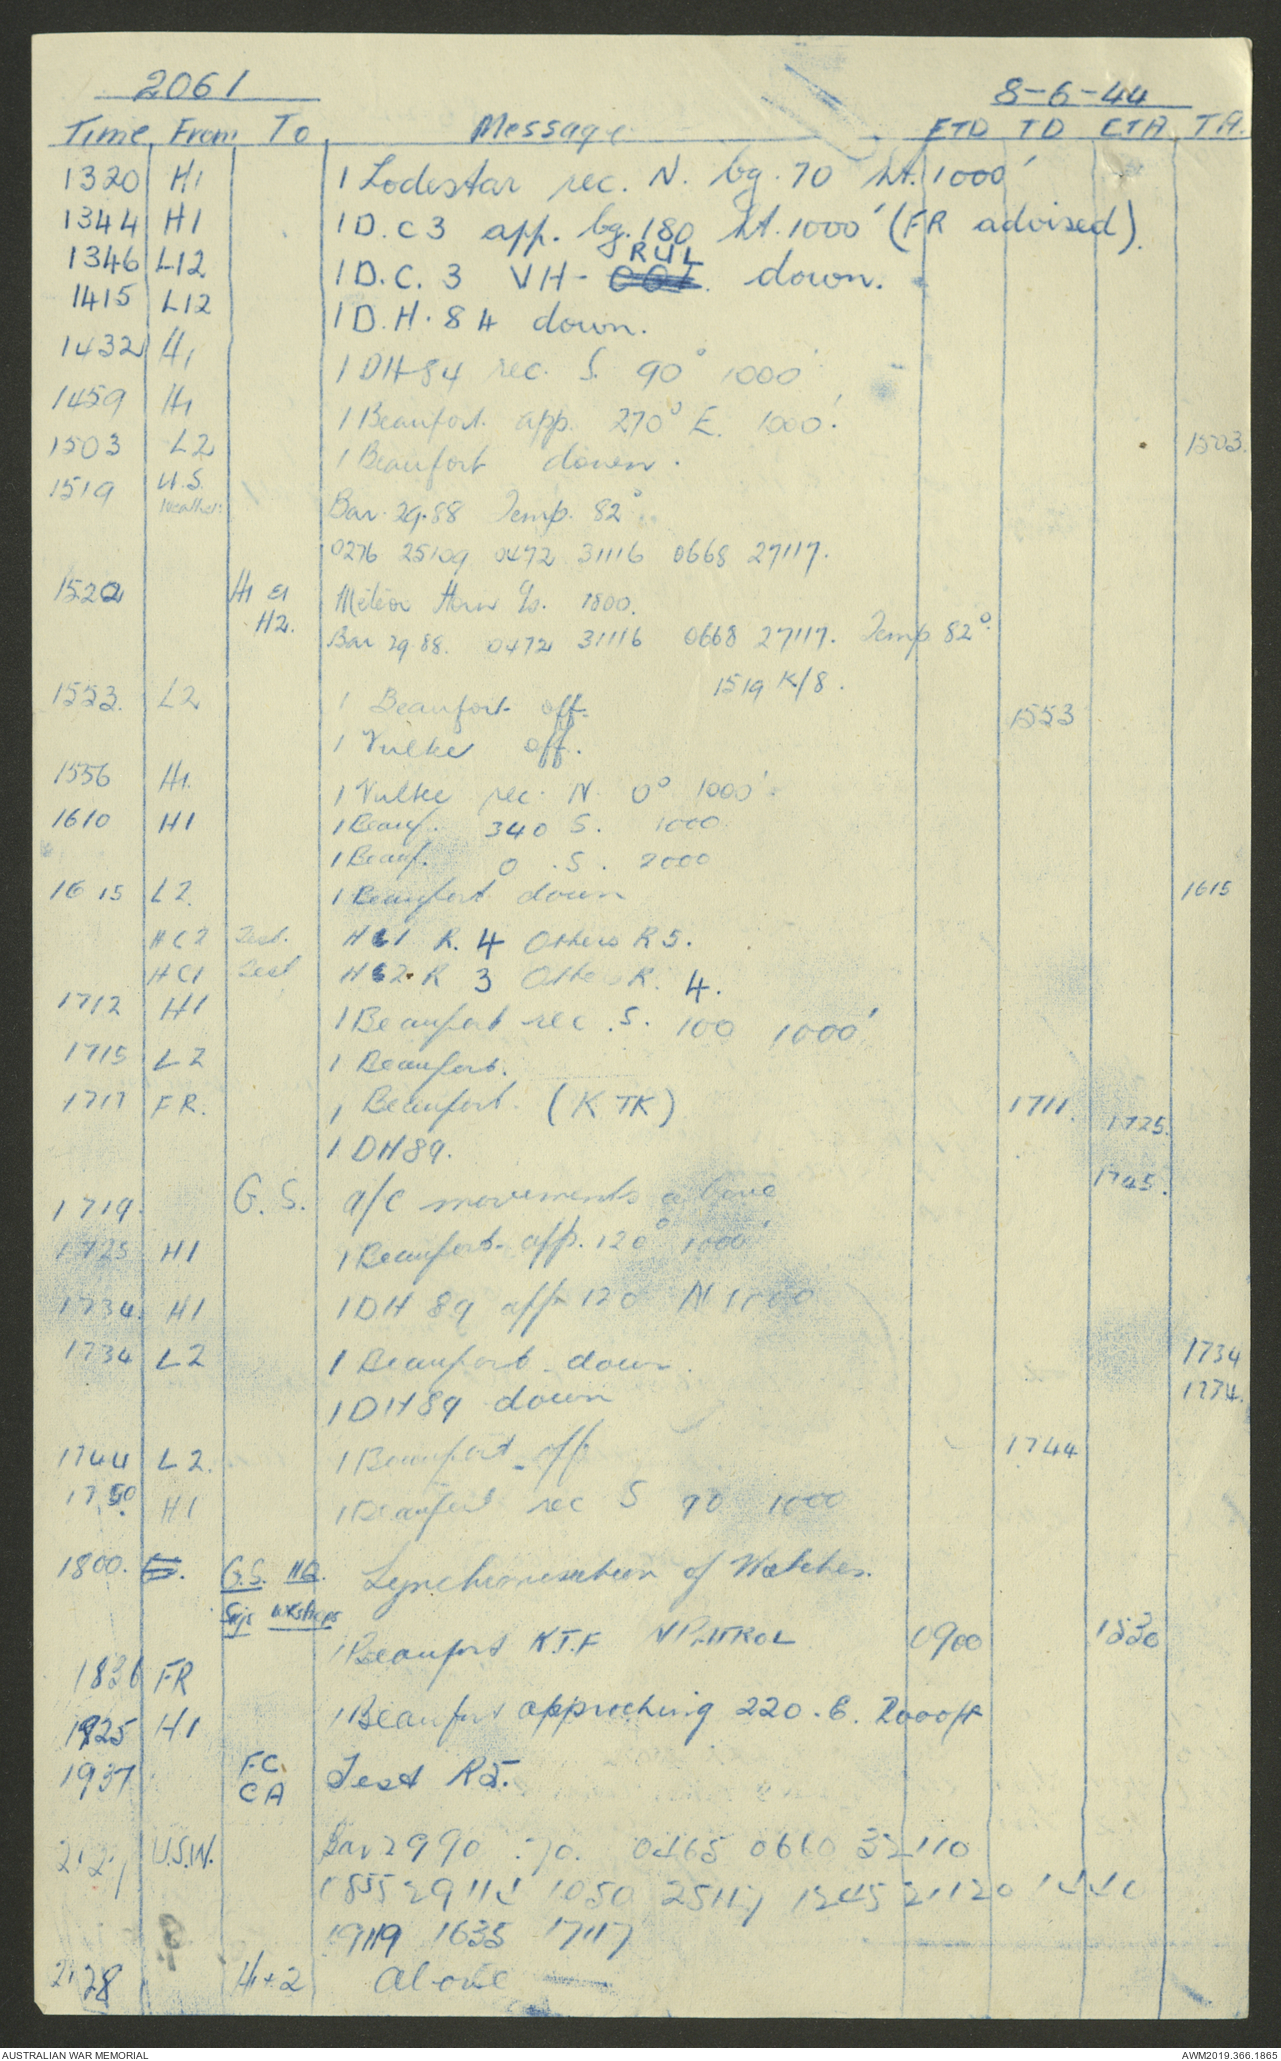 2061 8-6-44
Time From To Message ETD TD ETA T.A.
1320 H1 1 Lodestar rec. N. bg. 70 ht. 1000'
1344 H1 1 D.C 3 app. bg. 180 ht. 1000' (FR advised).
RUL
1346 L12 1 D.C. 3 VH- down.
1415 L12 1 D.H. 84 down.
1432 H1 1 DH 84 rec. S. 90° 1000'
1459 H1 1 Beaufort app. 270° E. 1000'.
1503 L2 1 Beaufort down. 1503.
1519 U.S. Bar. 29.88 Temp. 82°
Weather:
0276 25109 0472 31116 0668 27117.
1522 H1 & Meteor 1800.
H2. Bar 29.88. 0472 31116 0668 27117. Temp 82°.
1519 K/8.
1553. L2 1 Beaufort off. 1553
1 Vultee off.
1556 H1. 1 Vultee rec. N. 0° 1000'.
1610 H1 1 Beauf. 340 S. 1000
1 Beauf. 0 . S. 2000
1615 L2. 1 Beaufort down 1615
HC2 Test. R. 4 Others R5.
HC1 Test R 3 Others R. 4.
1712 H1 1 Beaufort rec. S. 100 1000'
1715 L2 1 Beaufort.
1717 FR. 1 Beaufort. (K TK) 1711. 1725.
1 DH89. 1745.
1719. G. S. a/c movements above
1725 H1 1 Beaufort app. 120° 1000'
1734. H1 1 DH 89 app 120 N 1000
1734 L2 1 Beaufort down. 1734
1 DH89 down 1734.
1744 L2. 1 Beaufort off 1744
1750 H1 1 Beaufort rec S 90 1000
1800. G.S. HQ. Synchronisation of Watches.
Sigs wkshops
1 Beaufort K.T.F N PATROL 0900 1830
1836 FR
1925 H1 1 Beaufort approching 220. E. 2000ft
1937 F.C. Test R5.
CA
2127 U.S.W. Bar 2990 : 70. 0465 0660 32110
1050 25117 1245 21120
19119 1635 17117
2128 H1+2 above
AUSTRALIAN WAR MEMORIAL AWM2019.366.1865